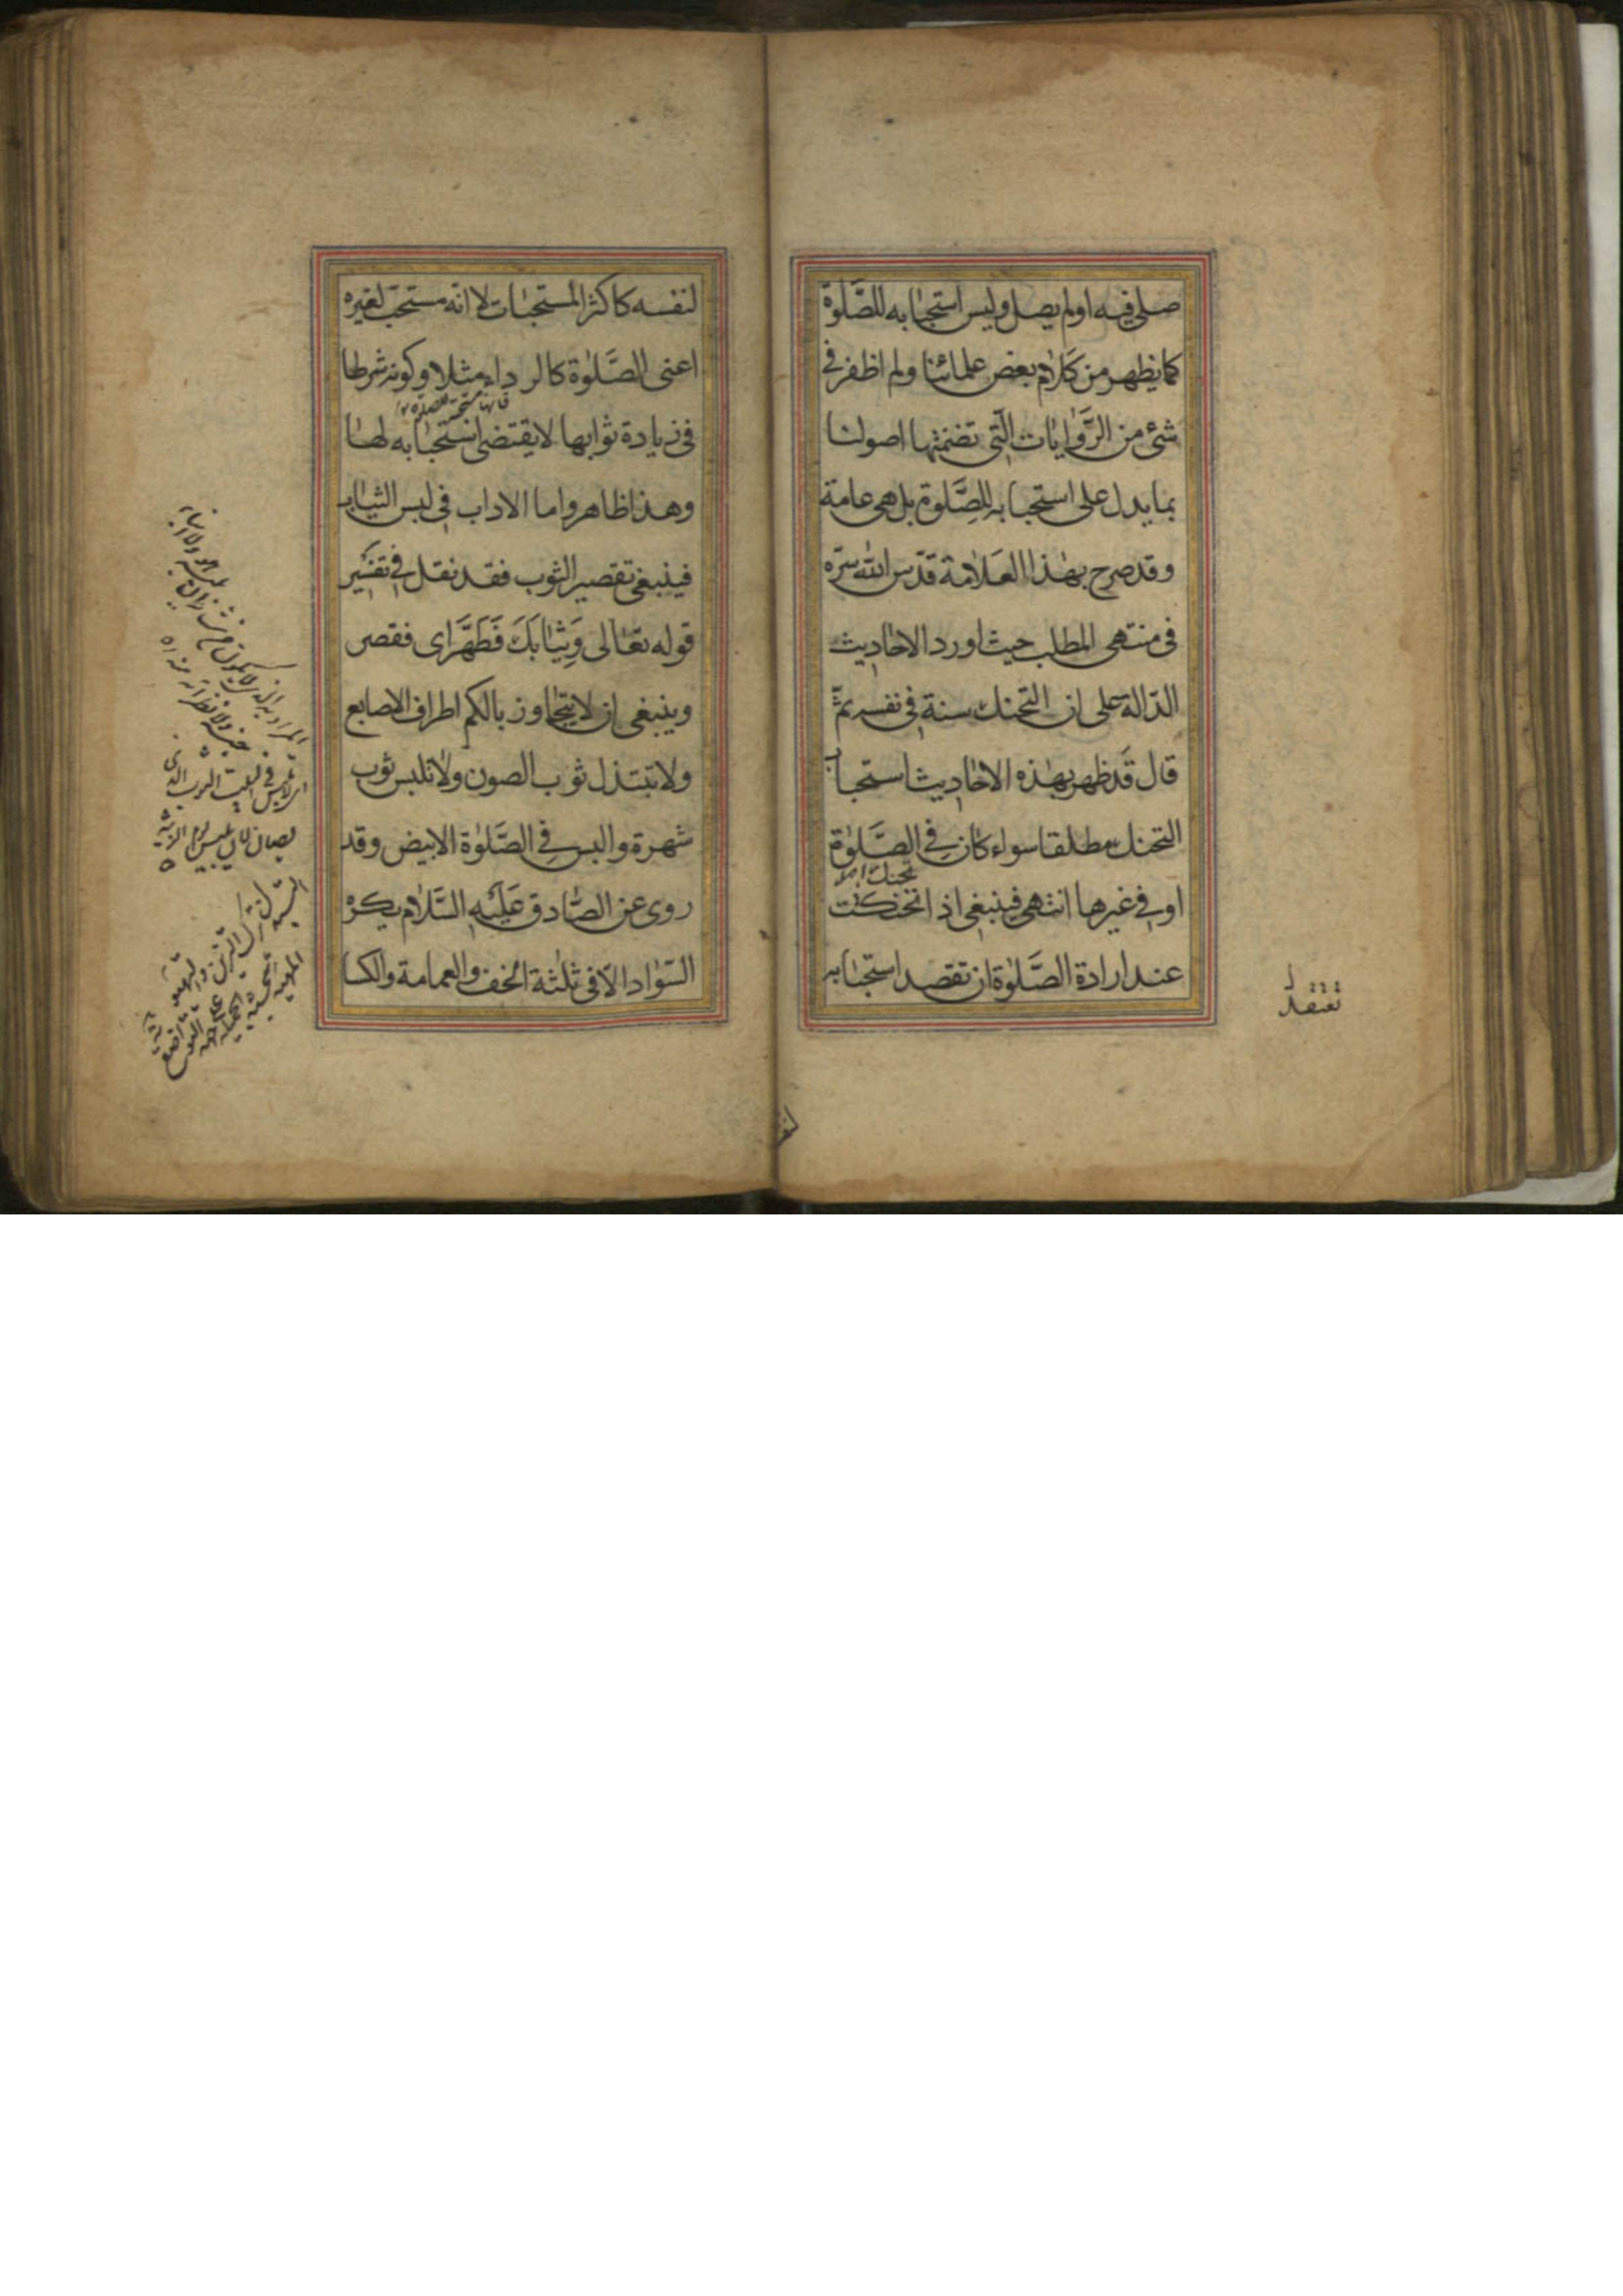 صلى فيه او لم يصل وليس استحبابه للصَّلٰوة
كما يظهر من كلام بعض علمائنا ولم اظفر فى
شئ من الرَّوٰايٰات الّتى تضمنتها اصولنا
بما يدل على استحبابه للصَّلوة بل هى عامة
وقد صرح بهٰذا العَلاٰمة قدّس اللّٰه سرّه
فى منتهى المطلب حيث اورد الاحاديث
الدّالة على ان التحنك سنة فى نفسه ثمّ
قال قَد ظهر بهٰذه الاحٰاديث استحباب
التحنك مطلقا سواء كان فى الصَّلوٰة
تحنك
او فى غيرها انتهى فينبغى اذا تحنكت
عند ارادة الصَّلوٰة ان تقصد استحبٰابه
لنفسه كاكثر المستحبٰات لا انّه مستحبّ لغيره
اعنى الصَّلوٰة كالرداء مثلا وكونه شرطا
فانها مستحبة للصلوة
فى زيادة ثوابها لا يقتضى استحبٰابه لهٰا
وهٰذا ظاهر واما الاداب فى لبس الثيٰاب
فينبغى تقصير الثوب فقد نقل فى تفسير
قوله تعٰالى وَثِيٰابَكَ فَطَهَّر اى فقصر
وينبغى ان لا يتجٰاوز بالكم اطراف الاصابع
ولا تبتذل ثوب الصون ولا تلبس ثوب
شهرة والبس فى الصَّلوٰة الابيض وقد
روى عن الصّٰادق عَلَيْه السَّلٰام يكره
السّوٰاد الّا فى ثلٰثة الخف والعمامة والكسا